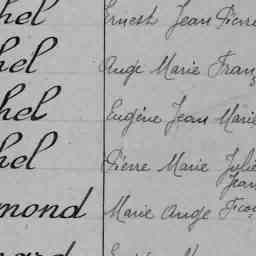 hel Ernest Jean Pierre
hel Ange Marie Franç
hel Eugène Jean Marie
hel Pierre Marie Julie
Jean
mond Marie Ange
nard